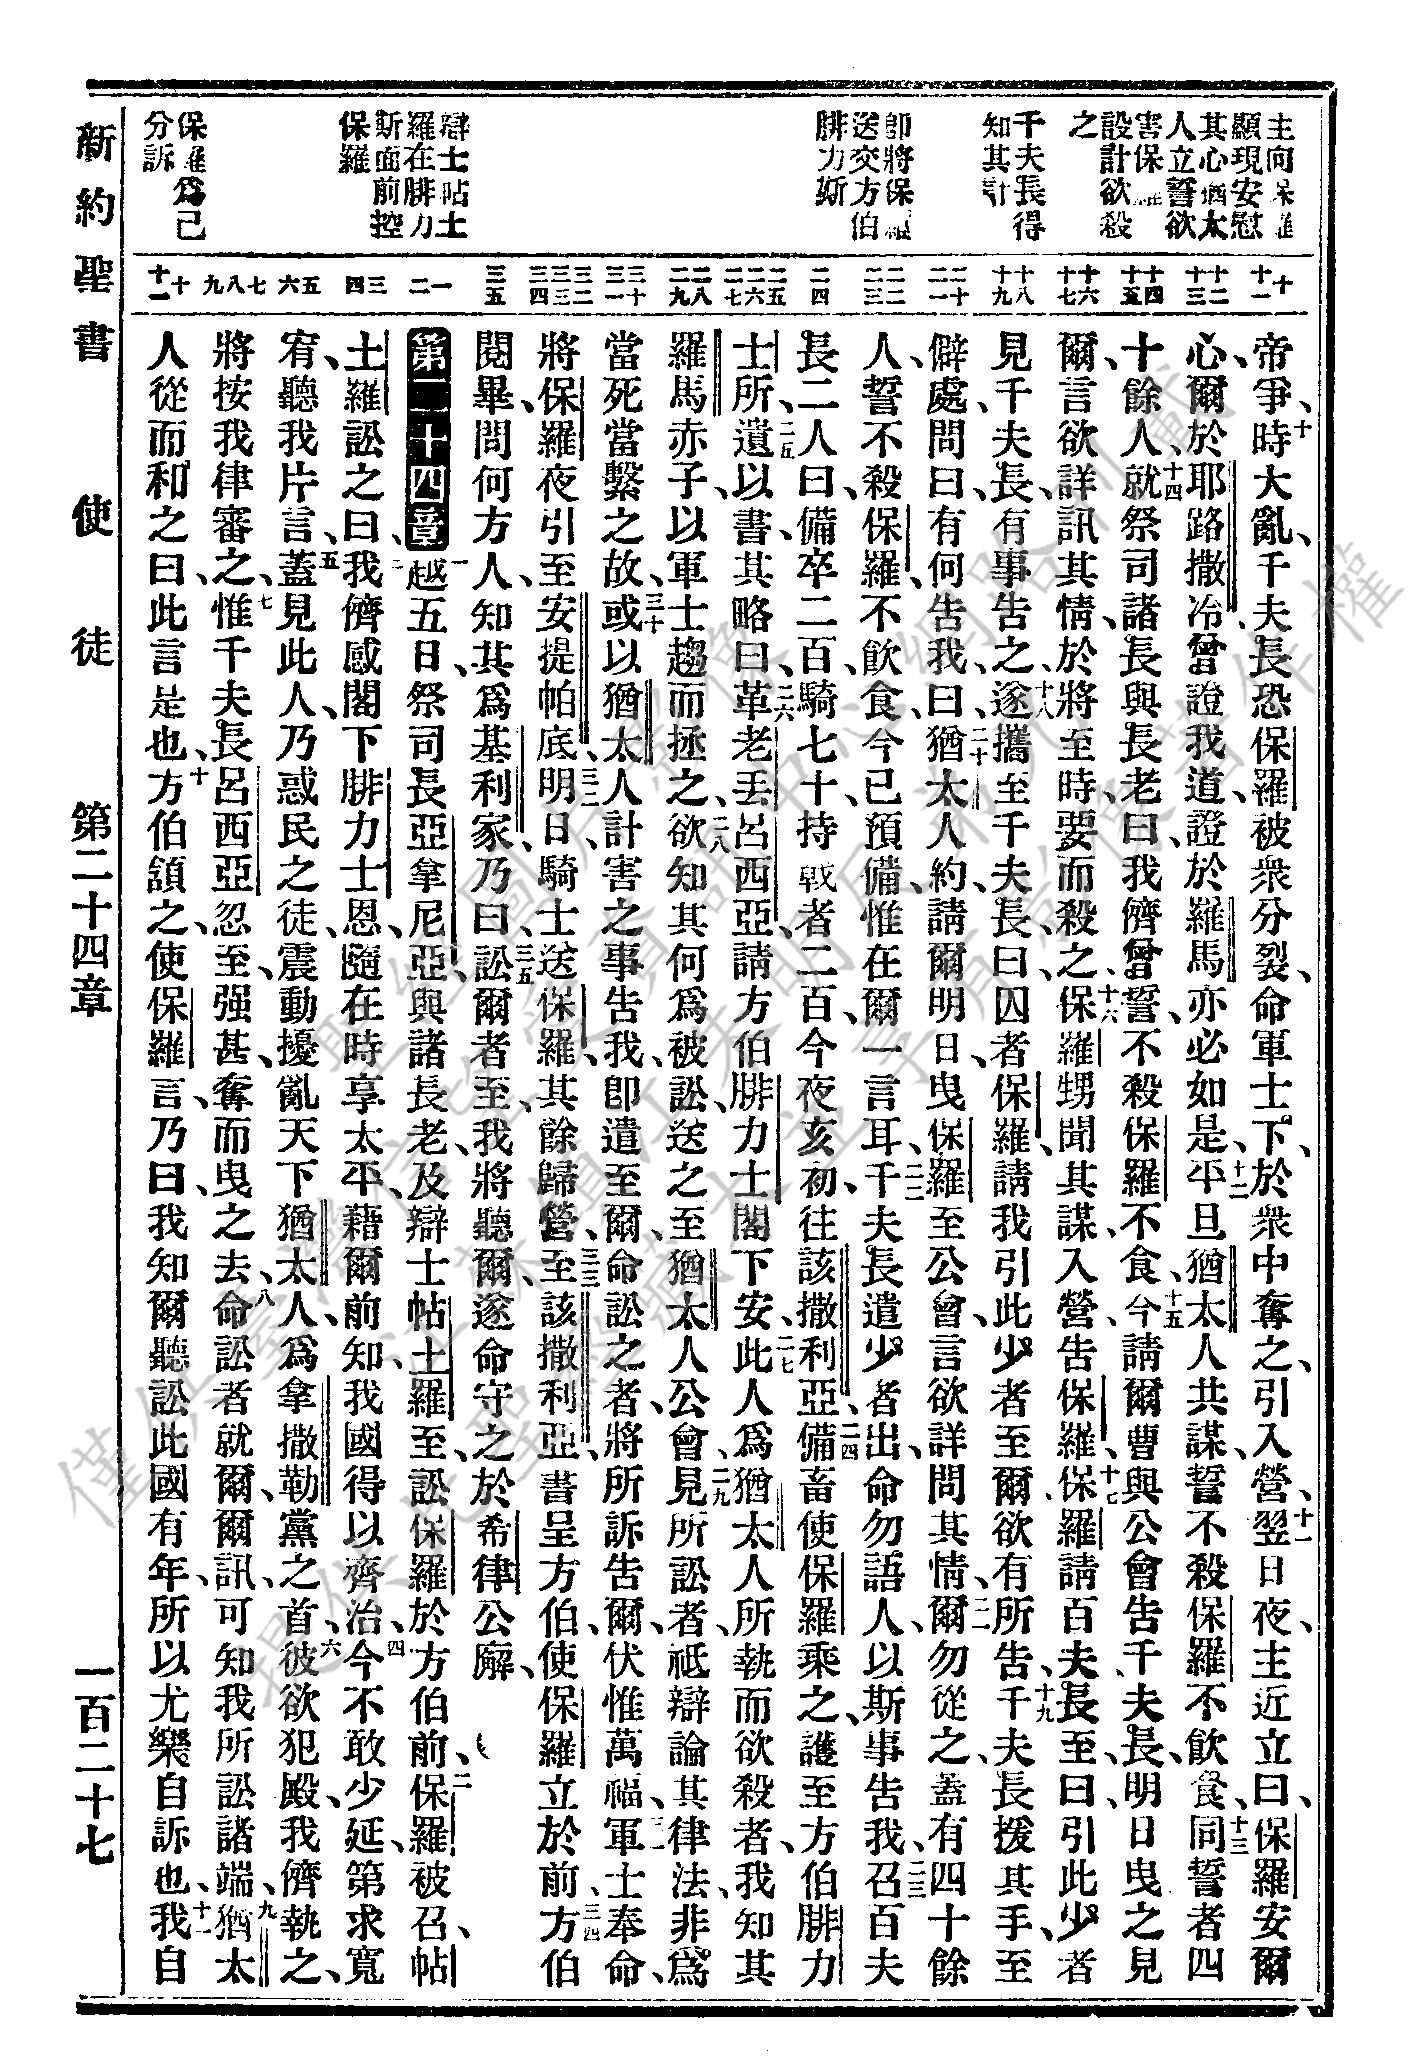 主向保羅
顯現安慰
其心猶太
人立誓欲
害保羅
設計欲殺
之
千夫長得
知其計
卽將保羅
送交方伯
腓力斯
辯士帖土
羅在腓力
斯面前控
保羅
保羅爲己
分訴
十 十一 十二 十三 十四 十五 十六 十七 十八 十九 二十 二一 二二 二三 二四 二五 二六 二七 二八 二九 三十 三一 三二 三三 三四 三五 一 二 三 四 五 六 七 八 九 十 十一
帝爭、十時大亂、千夫長恐保羅被衆分裂、命軍士下、於衆中奪之、引入營、十一翌日夜、主近立曰、保羅安爾
心、爾於耶路撒冷曾證我道、證於羅馬亦必如是、十二平旦猶太人共謀、誓不殺保羅不飮食、十三同誓者四
十餘人、十四就祭司諸長與長老曰、我儕曾誓、不殺保羅不食、十五今請爾曹與公會告千夫長、明日曳之見
爾、言欲詳訊其情、於將至時、要而殺之、十六保羅甥聞其謀、入營告保羅、十七保羅請百夫長至、曰、引此少者
見千夫長、有事告之、十八遂攜至千夫長曰、囚者保羅、請我引此少者至爾、欲有所告、十九千夫長援其手、至
僻處、問曰、有何告我、二十曰、猶太人約、請爾明日、曳保羅至公會、言欲詳問其情、二一爾勿從之、蓋有四十餘
人、誓不殺保羅、不飮食、今已預備、惟在爾一言耳、二二千夫長遣少者出、命勿語人、以斯事告我、二三召百夫
長二人曰、備卒二百、騎七十、持戟者二百、今夜亥初、往該撒利亞、二四備畜使保羅乘之、護至方伯腓力
士所、二五遺以書、其略曰、二六革老丟呂西亞、請方伯腓力士閣下安、二七此人爲猶太人所執、而欲殺者、我知其
羅馬赤子、以軍士趨而拯之、二八欲知其何爲被訟、送之至猶太人公會、二九見所訟者、祇辯論其律法、非爲
當死當繫之故、三十或以猶太人計害之事告我、卽遣至爾、命訟之者、將所訴告爾、伏惟萬福、三一軍士奉命、
將保羅夜引至安提帕底、三二明日、騎士送保羅、其餘歸營、三三至該撒利亞、書呈方伯、使保羅立於前、三四方伯
閱畢、問何方人、知其爲基利家、乃曰、三五訟爾者至、我將聽爾、遂命守之於希律公廨、
第二十四章 一越五日、祭司長亞拿尼亞、與諸長老、及辯士帖土羅至、訟保羅於方伯前、二保羅被召、帖
土羅訟之曰、三我儕感閣下腓力士恩、隨在時享太平、藉爾前知、我國得以齊治、四今不敢少延、第求寬
宥、聽我片言、五蓋見此人乃惑民之徒、震動擾亂天下猶太人、爲拿撒勒黨之首、六彼欲犯殿、我儕執之、
將按我律審之、七惟千夫長呂西亞忽至、强甚、奪而曳之去、八命訟者就爾、爾訊、可知我所訟諸端、九猶太
人從而和之曰、此言是也、十方伯頷之、使保羅言、乃曰、我知爾聽訟此國有年、所以尤樂自訴也、十一我自
新約聖書 使徒 第二十四章 一百二十七